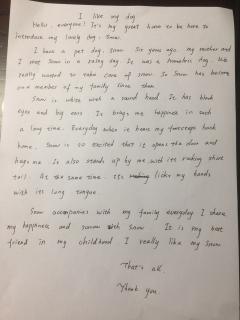 I like my dog
Hello, everyone! It's my great honor to be here to
introduce my lovely dog, Snow.
I have a pet dog, Snow. Six years ago, my mother and
I met Snow in a rainy day. It was a homeless dog. We
really wanted to take care of snow. So Snow has become
one member of my family since then.
Snow is white with a round head. It has black
eyes and big ears. It brings me happiness in such
a long time. Everyday when it hears my footsteps back
home, Snow is so excited that it opens the door and
hugs me. It also stands up by me with its shaking short
tail. At the same time. It licks my hands
with its long tongue.
Snow accompanies with my family everyday. I share
my happiness and sorrow with snow. It is my best
friend in my childhood. I really like my Snow
That's all.
Thank you.